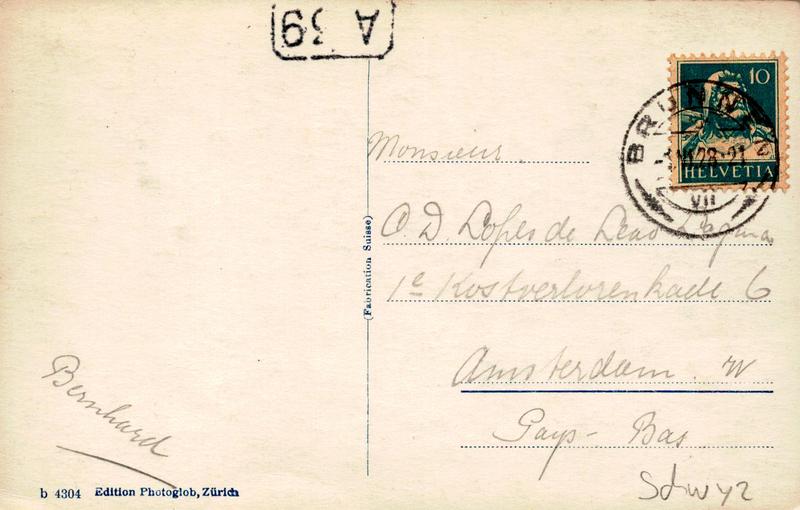 A 39
10
HELVETIA
BRUNNEN
VII
Monsieur
C. D. Lopes de Leao Laguna
1e Kostverlorenkade 6
Amsterdam. W
Pays-Bas
Schwyz
(Fabrication Suisse)
Bernhard
b 4304 Edition Photoglob, Zürich